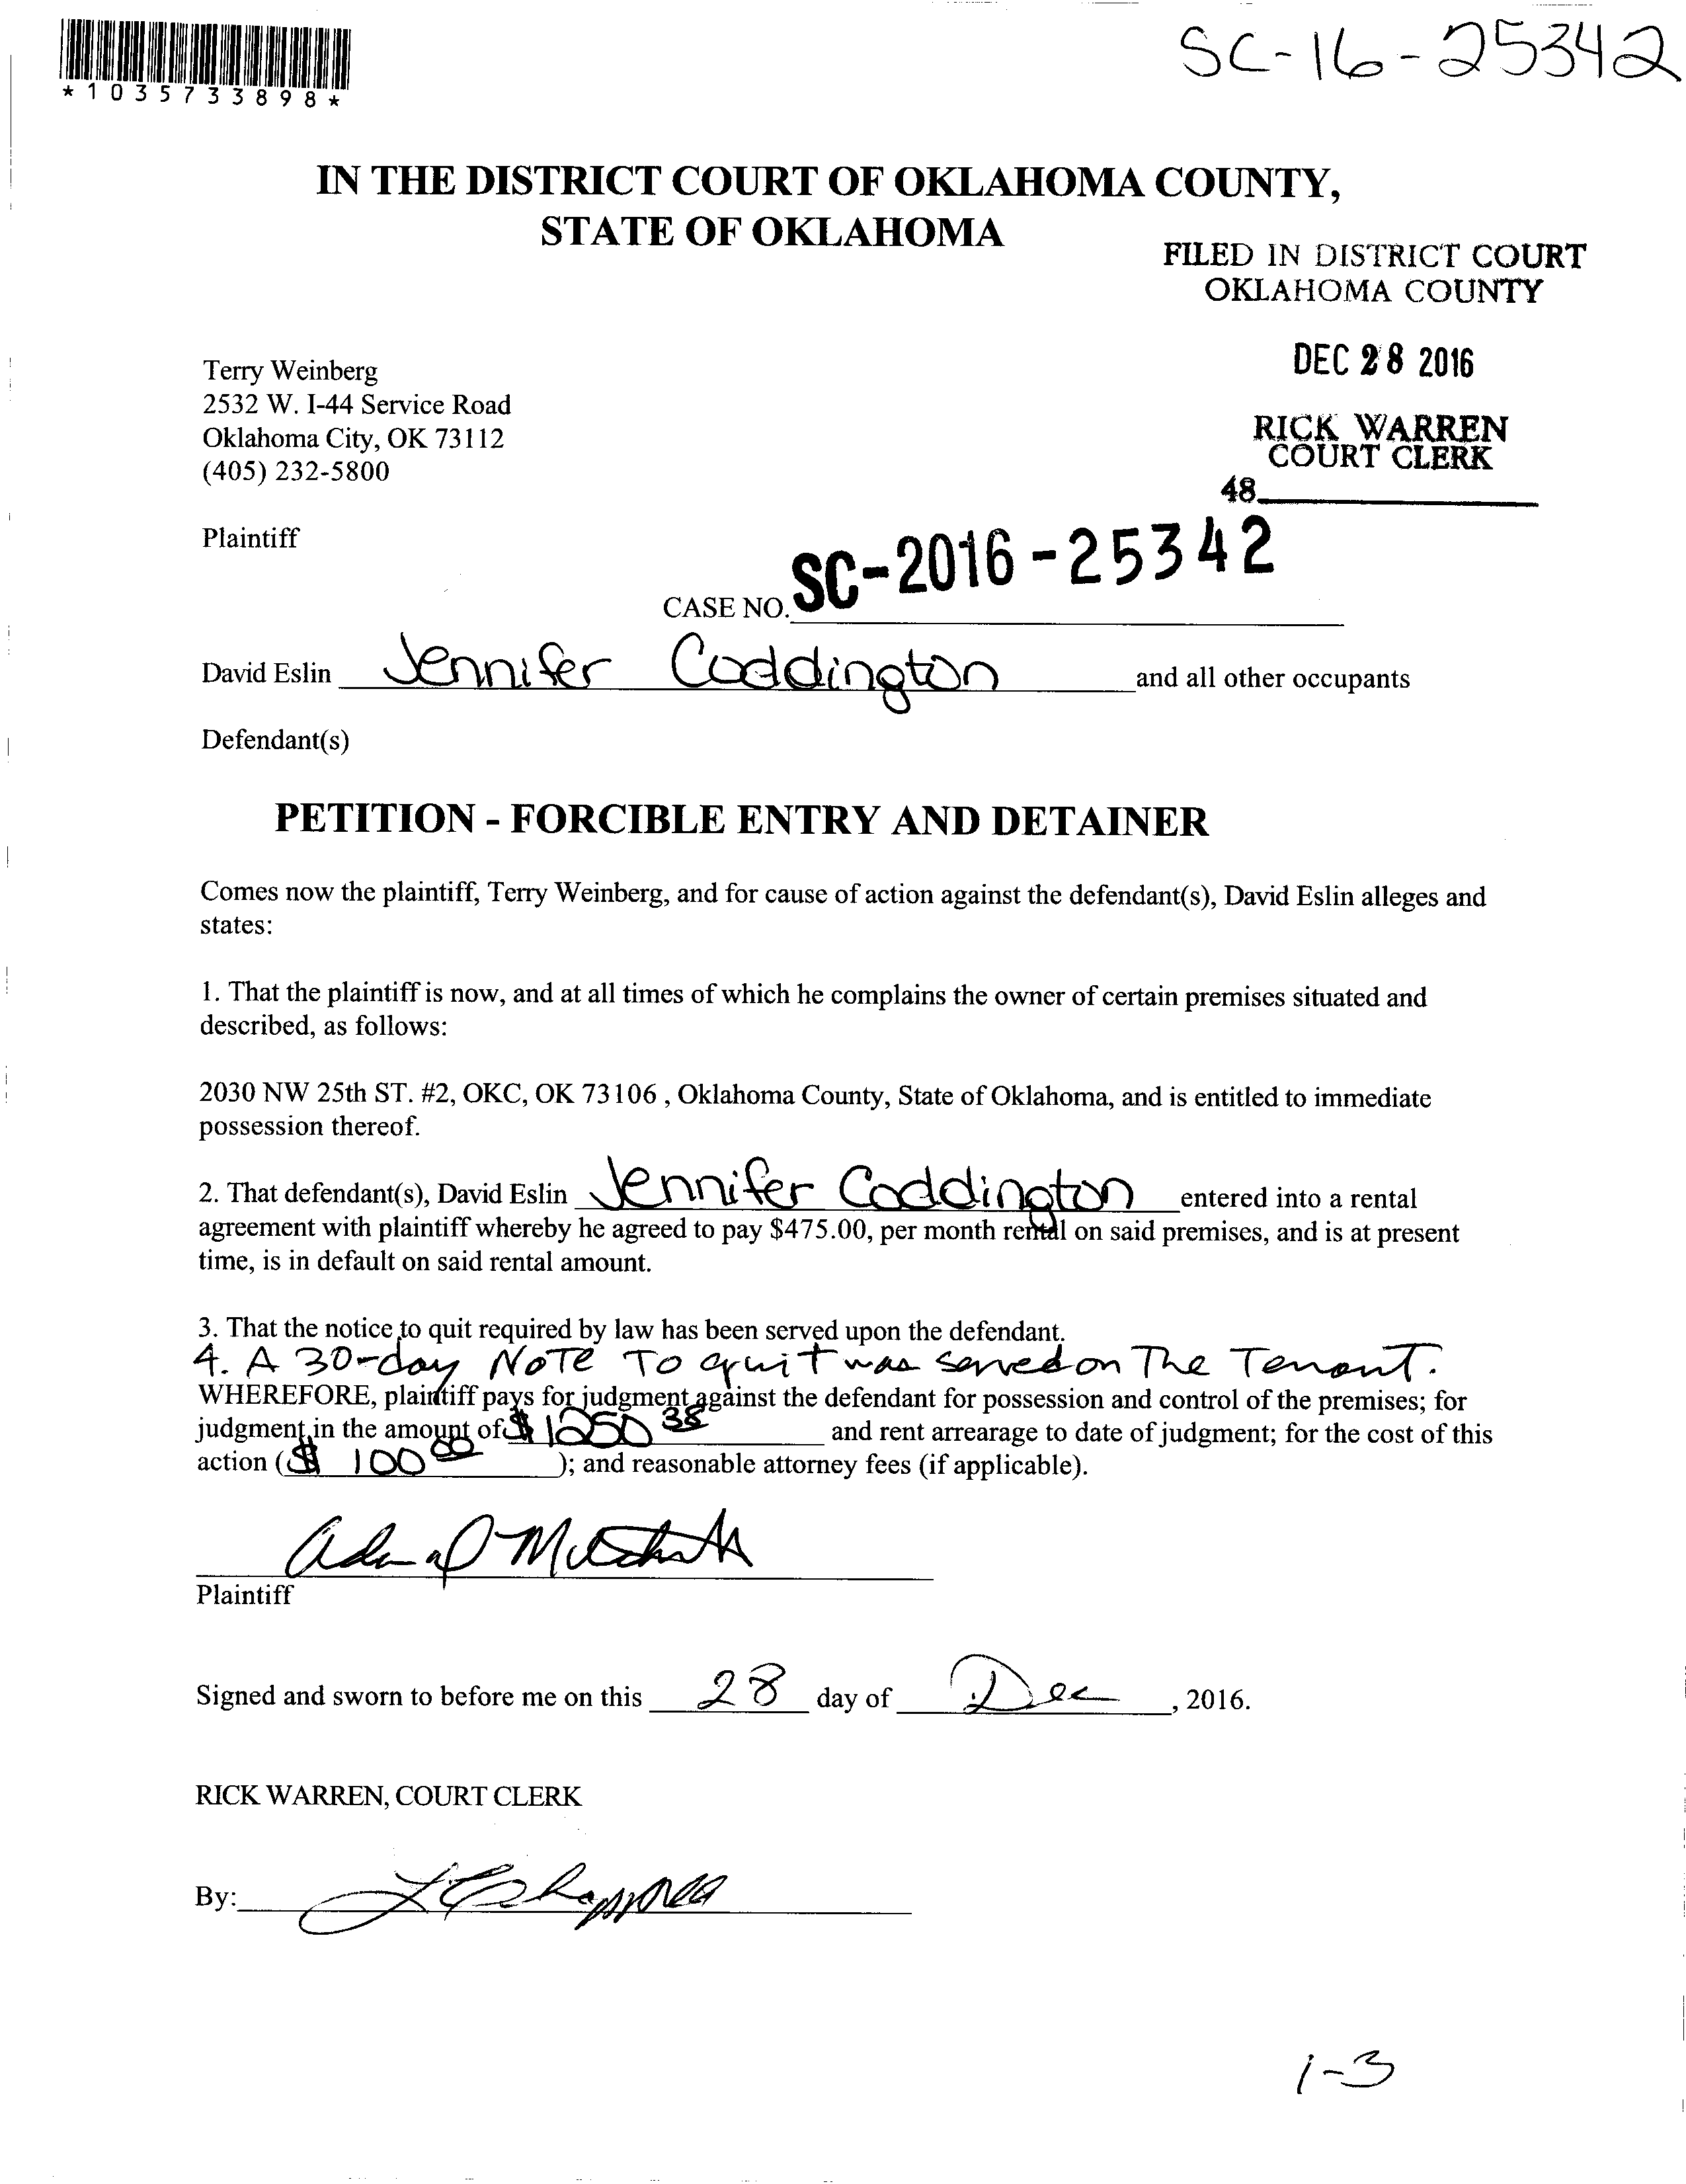 SC-16-25342
*1035733898*
IN THE DISTRICT COURT OF OKLAHOMA COUNTY,
STATE OF OKLAHOMA
FILED IN DISTRICT COURT
OKLAHOMA COUNTY
DEC 28 2016
RICK WARREN
COURT CLERK
48
Terry Weinberg
2532 W. I-44 Service Road
Oklahoma City, OK 73112
(405) 232-5800
Plaintiff
CASE NO. SC-2016-25342
David Eslin Jennifer Coddington and all other occupants
Defendant(s)
PETITION - FORCIBLE ENTRY AND DETAINER
Comes now the plaintiff, Terry Weinberg, and for cause of action against the defendant(s), David Eslin alleges and
states:
1. That the plaintiff is now, and at all times of which he complains the owner of certain premises situated and
described, as follows:
2030 NW 25th ST. #2, OKC, OK 73106 , Oklahoma County, State of Oklahoma, and is entitled to immediate
possession thereof.
2. That defendant(s), David Eslin Jennifer Coddington entered into a rental
agreement with plaintiff whereby he agreed to pay $475.00, per month rental on said premises, and is at present
time, is in default on said rental amount.
3. That the notice to quit required by law has been served upon the defendant.
4. A 30-day Note To quit was served on The Tenant.
WHEREFORE, plaintiff pays for judgment against the defendant for possession and control of the premises; for
judgment in the amount of $ 1250 38 and rent arrearage to date of judgment; for the cost of this
action ($ 100 00); and reasonable attorney fees (if applicable).
Plaintiff
Signed and sworn to before me on this 28 day of Dec, 2016.
RICK WARREN, COURT CLERK
By:
1-3